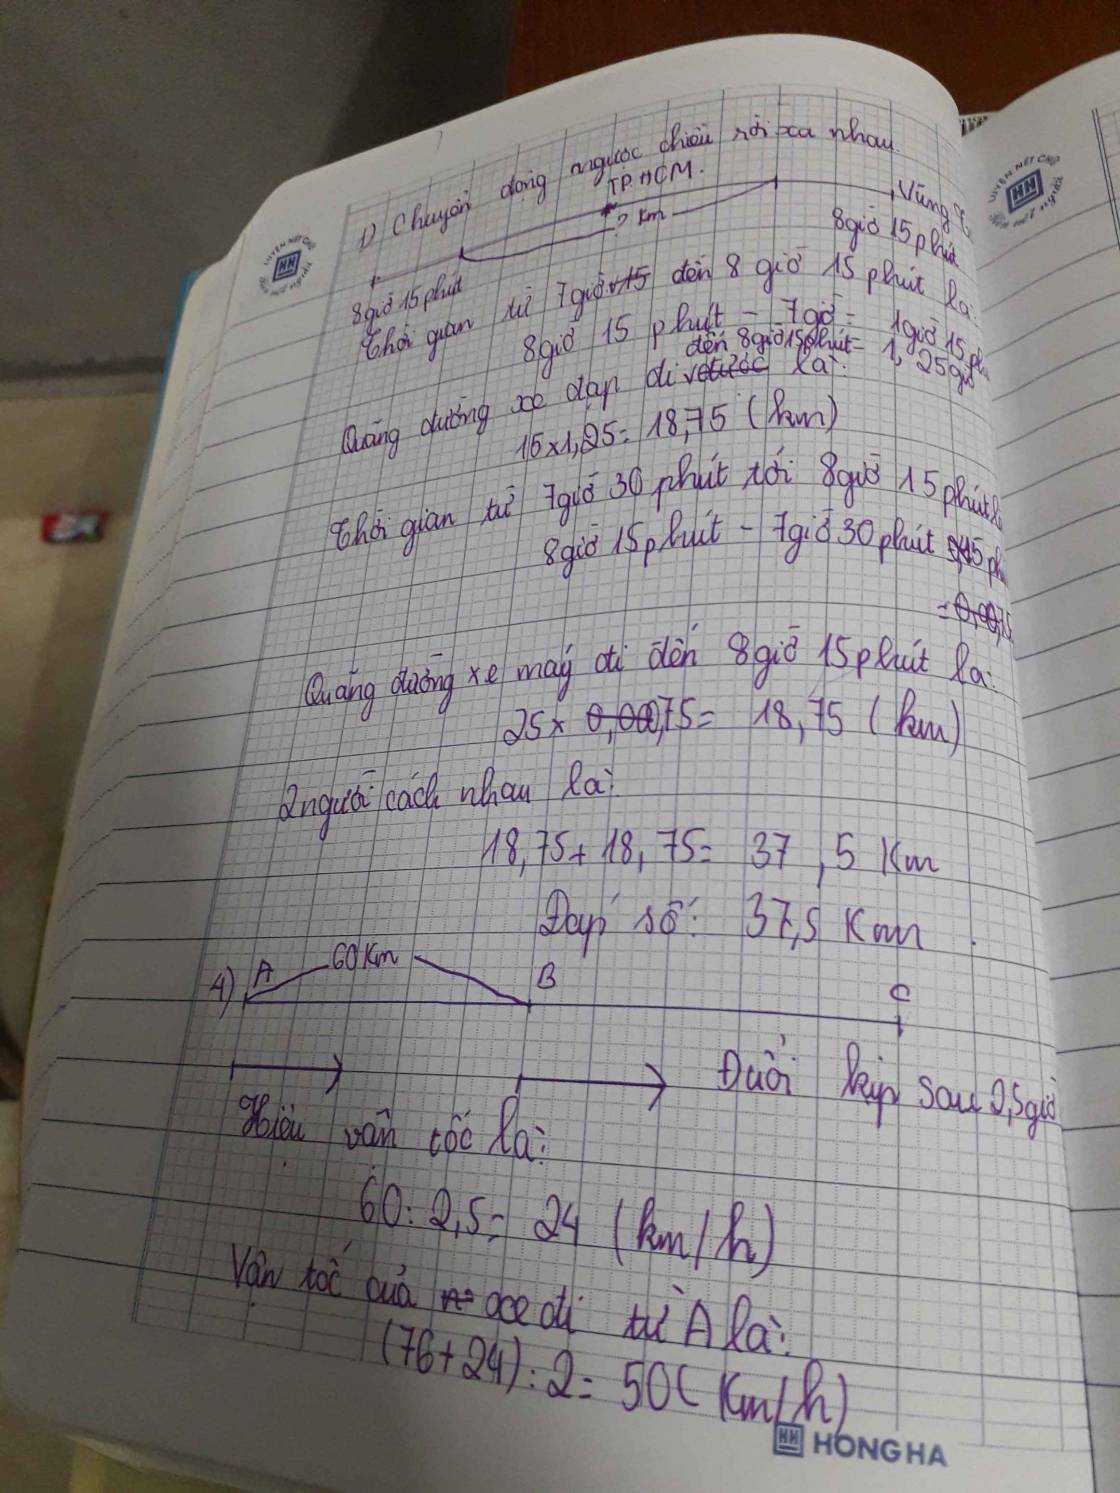 1) Chuyển động ngược chiều rời xa nhau.
TP.HCM.
? km
Vũng
8 giờ 15 phút
8 giờ 15 phút
Thời gian từ 7 giờ đến 8 giờ 15 phút là:
8 giờ 15 phút - 7 giờ = 1 giờ 15
= 1,25 giờ
Quãng đường xe đạp đi đến 8 giờ 15 phút là:
15 x 1,25 = 18,75 (km)
Thời gian từ 7 giờ 30 phút tới 8 giờ 15 phút
8 giờ 15 phút - 7 giờ 30 phút
Quãng đường xe máy đi đến 8 giờ 15 phút là:
25 x 0,75 = 18,75 (km)
2 người cách nhau là:
18,75 + 18,75 = 37,5 Km
Đáp số: 37,5 Km
4) A 60 Km B C
Đuổi kịp sau 2,5 giờ
Hiệu vận tốc là:
60 : 2,5 = 24 (km/h)
Vận tốc của xe đi từ A là:
(76 + 24) : 2 = 50 (Km/h)
HH HONG HA